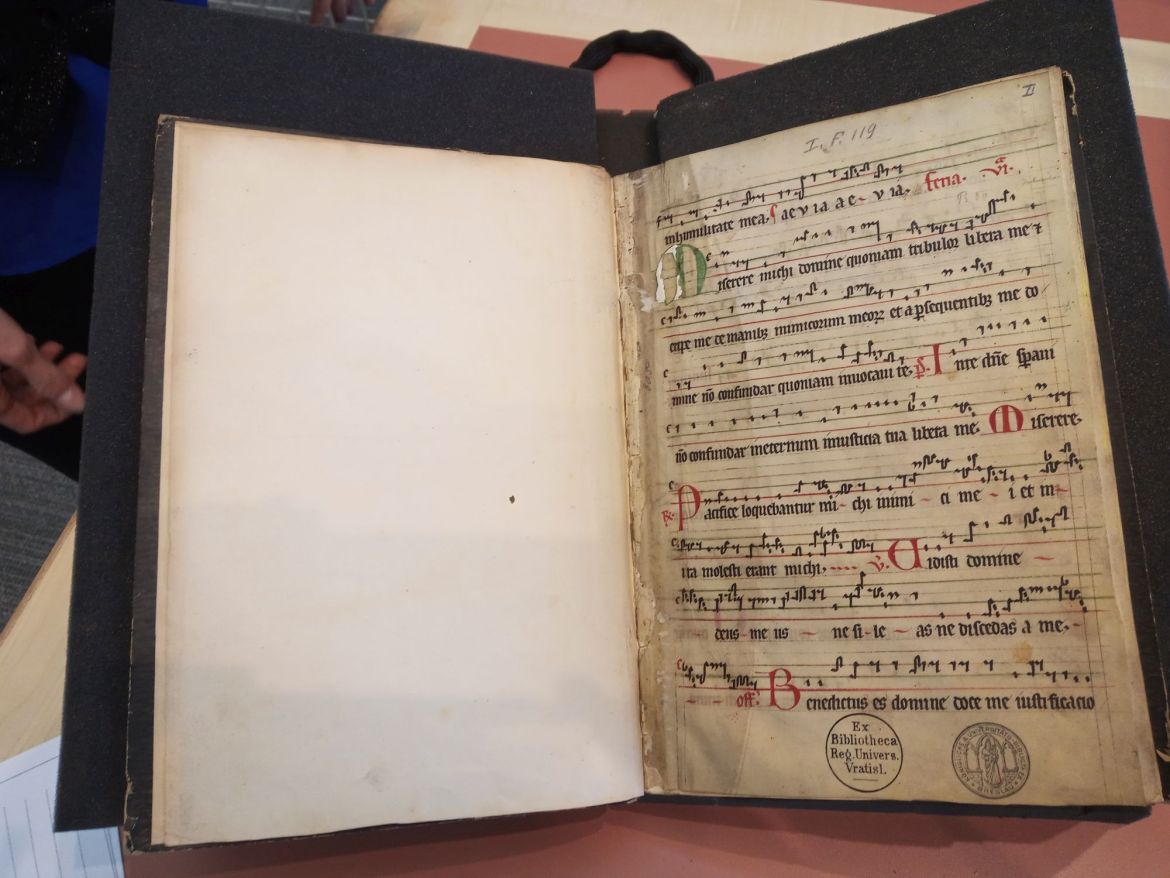 II
I. F. 119
inhumilitate mea. ae v ia a e v ia. feria. vi.
Miserere michi domine quoniam tribulor libera me et
eripe me de manibz inimicorum meorz et a psequentibz me do
mine nō confundar quoniam inuocaui te. ps. In te dne spaui
nō confundar ineternum iniusticia tua libera me. Miserere
R. Pacifice loquebantur mi chi inimi ci me i et in
ira molesti erant michi. v. Uidisti domine
deus me us ne si le as ne discedas a me.
off. Benedictus es domine doce me iustificacio
Ex
Bibliotheca
Reg. Univers.
Vratisl.
BRESLAU